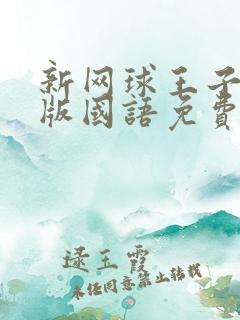 新网球王子
版國語免費
逯玉霞
未经同意禁止转载